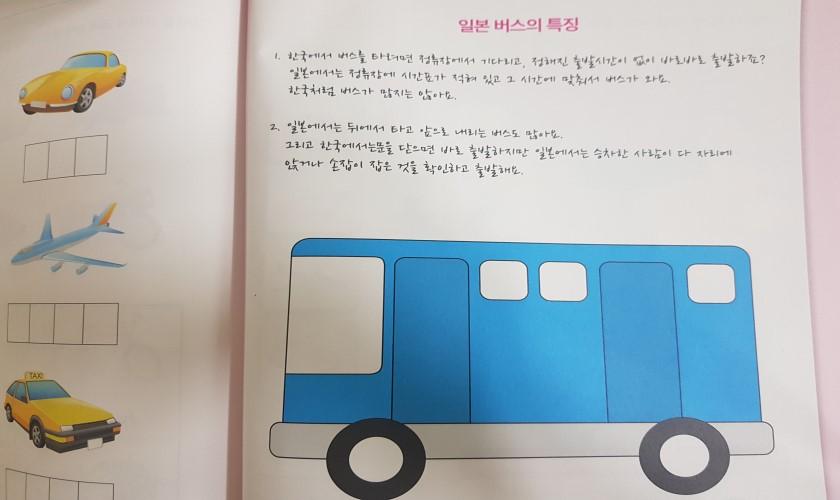 일본 버스의 특징
1. 한국에서 버스를 타려면 정류장에서 기다리고, 정해진 출발시간이 없이 바로바로 출발하죠?
일본에서는 정류장에 시간표가 적혀 있고 그 시간에 맞춰서 버스가 와요.
한국처럼 버스가 많지는 않아요.
2. 일본에서는 뒤에서 타고 앞으로 내리는 버스도 많아요.
그리고 한국에서는문을 닫으면 바로 출발하지만 일본에서는 승차한 사람이 다 자리에
앉거나 손잡이 잡은 것을 확인하고 출발해요.
TAXI